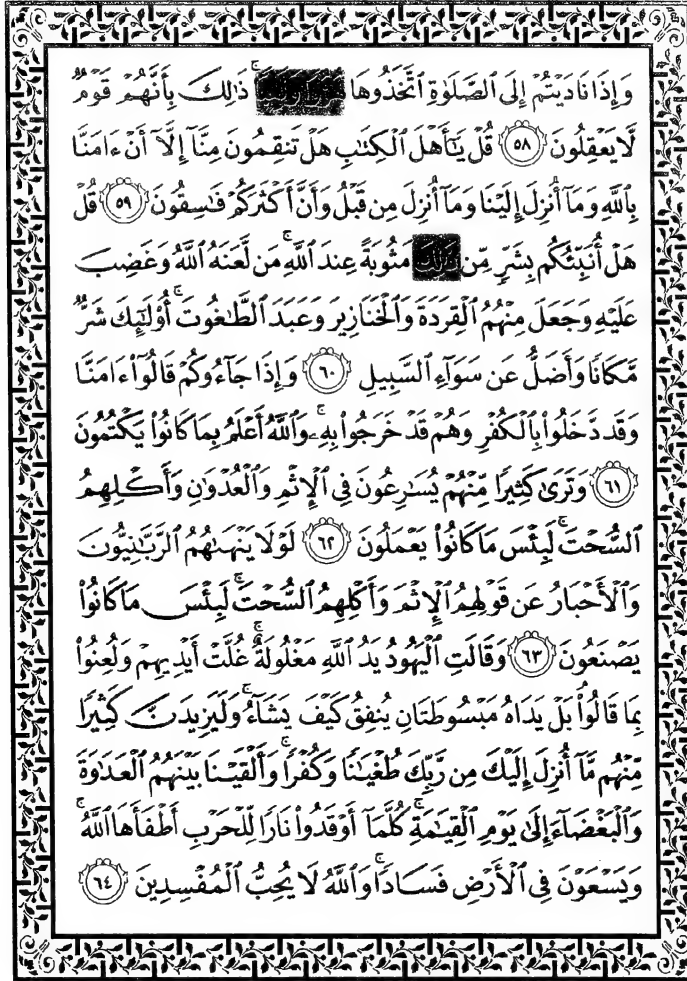 وَإِذَا نَادَيْتُمْ إِلَى ٱلصَّلَوٰةِ ٱتَّخَذُوهَا ذَٰلِكَ بِأَنَّهُمْ قَوْمٌ
لَّا يَعْقِلُونَ ٥٨ قُلْ يَٰٓأَهْلَ ٱلْكِتَٰبِ هَلْ تَنقِمُونَ مِنَّآ إِلَّآ أَنْ ءَامَنَّا
بِٱللَّهِ وَمَآ أُنزِلَ إِلَيْنَا وَمَآ أُنزِلَ مِن قَبْلُ وَأَنَّ أَكْثَرَكُمْ فَٰسِقُونَ ٥٩ قُلْ
هَلْ أُنَبِّئُكُم بِشَرٍّ مِّن مَثُوبَةً عِندَ ٱللَّهِ ۚ مَن لَّعَنَهُ ٱللَّهُ وَغَضِبَ
عَلَيْهِ وَجَعَلَ مِنْهُمُ ٱلْقِرَدَةَ وَٱلْخَنَازِيرَ وَعَبَدَ ٱلطَّٰغُوتَ ۚ أُو۟لَٰٓئِكَ شَرٌّ
مَّكَانًا وَأَضَلُّ عَن سَوَآءِ ٱلسَّبِيلِ ٦٠ وَإِذَا جَآءُوكُمْ قَالُوٓا۟ ءَامَنَّا
وَقَد دَّخَلُوا۟ بِٱلْكُفْرِ وَهُمْ قَدْ خَرَجُوا۟ بِهِۦ ۚ وَٱللَّهُ أَعْلَمُ بِمَا كَانُوا۟ يَكْتُمُونَ
٦١ وَتَرَىٰ كَثِيرًا مِّنْهُمْ يُسَٰرِعُونَ فِى ٱلْإِثْمِ وَٱلْعُدْوَٰنِ وَأَكْلِهِمُ
ٱلسُّحْتَ ۚ لَبِئْسَ مَا كَانُوا۟ يَعْمَلُونَ ٦٢ لَوْلَا يَنْهَىٰهُمُ ٱلرَّبَّٰنِيُّونَ
وَٱلْأَحْبَارُ عَن قَوْلِهِمُ ٱلْإِثْمَ وَأَكْلِهِمُ ٱلسُّحْتَ ۚ لَبِئْسَ مَا كَانُوا۟
يَصْنَعُونَ ٦٣ وَقَالَتِ ٱلْيَهُودُ يَدُ ٱللَّهِ مَغْلُولَةٌ ۚ غُلَّتْ أَيْدِيهِمْ وَلُعِنُوا۟
بِمَا قَالُوا۟ ۘ بَلْ يَدَاهُ مَبْسُوطَتَانِ يُنفِقُ كَيْفَ يَشَآءُ ۚ وَلَيَزِيدَنَّ كَثِيرًا
مِّنْهُم مَّآ أُنزِلَ إِلَيْكَ مِن رَّبِّكَ طُغْيَٰنًا وَكُفْرًا ۚ وَأَلْقَيْنَا بَيْنَهُمُ ٱلْعَدَٰوَةَ
وَٱلْبَغْضَآءَ إِلَىٰ يَوْمِ ٱلْقِيَٰمَةِ ۚ كُلَّمَآ أَوْقَدُوا۟ نَارًا لِّلْحَرْبِ أَطْفَأَهَا ٱللَّهُ ۚ
وَيَسْعَوْنَ فِى ٱلْأَرْضِ فَسَادًا ۚ وَٱللَّهُ لَا يُحِبُّ ٱلْمُفْسِدِينَ ٦٤